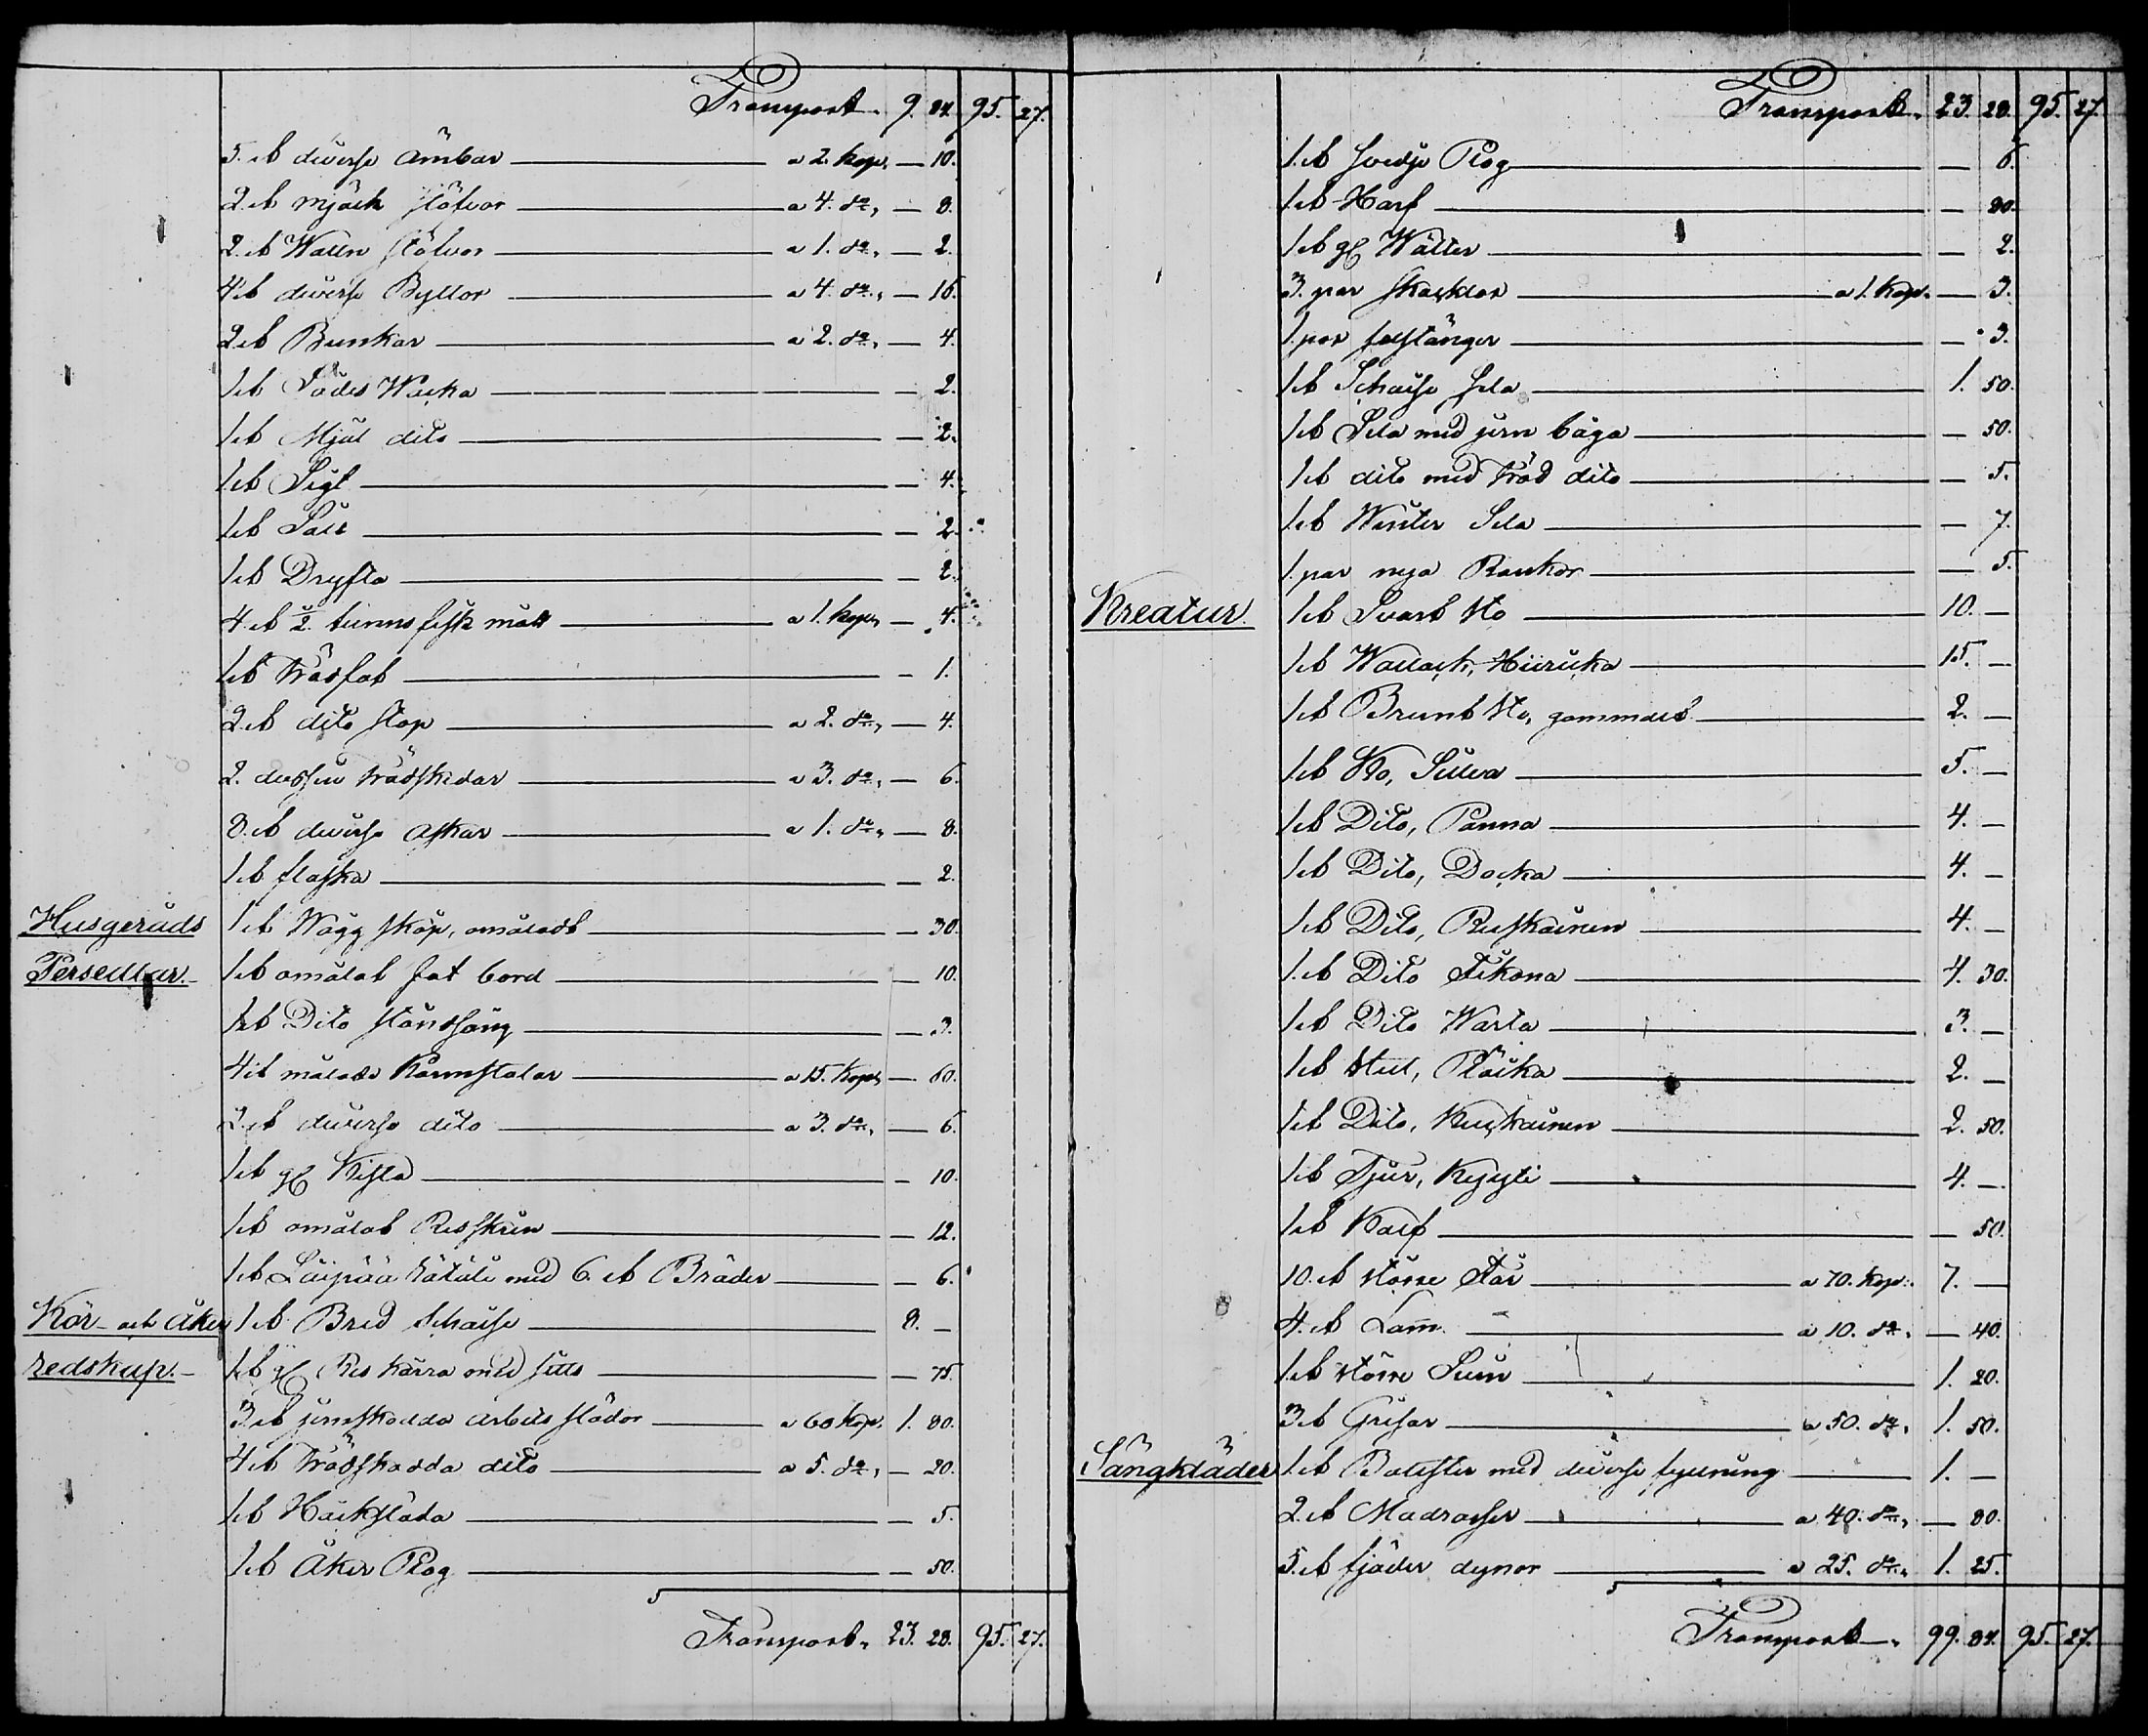 Transport. 9. 84. 95. 27.
5. st diverse ämbar a 2. kop. — 10.
2. st Mjölk stäfvor a 4. do. — 8.
2. st Watten stäfvor a 1. do. — 2.
4. st diverse Byttor a 4. do. — 16.
2 st Bunkar a 2. do. — 4.
1 st Sädes Wacka — 2.
1 st Mjöl dito — 2.
1 st Sigt — 4.
1 st Såll — 2.
1 st Dryfta — 2.
4. st 1/2 tunns fisk mått a 1. kop. — 4.
1 st Trädfat — 1.
2 st dito stop a 2. do. — 4.
2. dussin trädskedar a 3. do. — 6.
8. st diverse askar a 1. do. — 8.
1 st flaska — 2.
Husgeråds 1 st Wägg skåp, omåladt — 30.
Persedlar. 1 st omålat fat bord — 10.
1 st Dito ståndsäng — 3.
4 st målade Karmstolar a 15. Kop. — 60.
2 st diverse dito a 3. do. — 6.
1 st gl Kista — 10.
1 st omålat Resskrin — 12.
1 st Läipää tätilä med 6. st Bräder — 6.
Kör- och Åker 1 st Bred Schäise 8. —
redskap. 1 st gl Res kärra med sits — 75.
3 st jernskodda arbets slädor a 60 Kop. 1. 80.
4 st trädskodda dito a 5. do. — 20.
1 st Häckslåda — 5.
1 st Åker Plog — 50.
Transport. 23. 28. 95. 27.
Transport. 23. 28. 95. 27.
1. st svedje Plog — 6.
1 st Harf — 80.
1 st gl Wälter — 2.
3. par skacklor a 1. Kop. — 3.
1. par stänger — 3.
1 st Schäise sela 1. 50.
1 st Sela med jern båga — 50.
1 st dito med träd dito — 5.
1 st Winter Sela — 7.
1. par nya Rankor — 5.
Kreatur 1 st Svart Sto 10. —
1 st Wallack, Hiirucka 15. —
1 st Brunt Sto, gammalt 2. —
1 st Ko, Silleva 5. —
1 st Dito, Panna 4. —
1 st Dito, Docka 4. —
1 st Dito, Ruskainen 4. —
1. st Dito Tikona 4. 30.
1 st Dito Warta 3. —
1 st Stut, Pläcka 2. —
1 st Dito, Kuckainen 2. 50.
1 st Tjur, Kyyti 4. —
1 st Kalf — 50.
10. st större Får a 70. kop. 7. —
4. st Lamm. a 10. do. — 40.
1 st större Svin 1. 20.
3 st Grisar a 50. do. 1. 50.
Sängkläder 1. st Bolster med diverse fyllning 1. —
2. st Madrasser a 40. do. — 80.
5. st fjäder dynor a 25. do. 1. 25.
Transport. 99. 84. 95. 27.